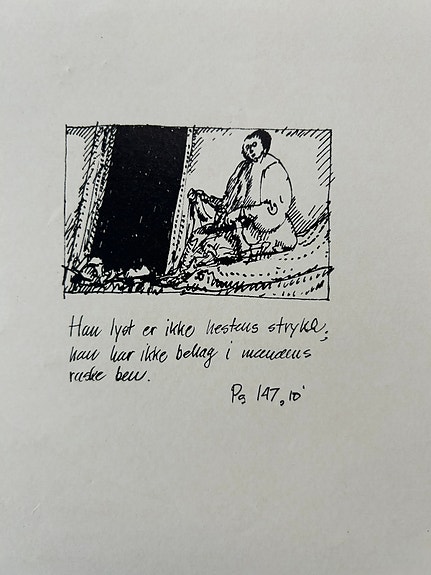 Han lyst er ikke hestens styrke;
han har ikke behag i manens
raske ben.
Ps 147,10